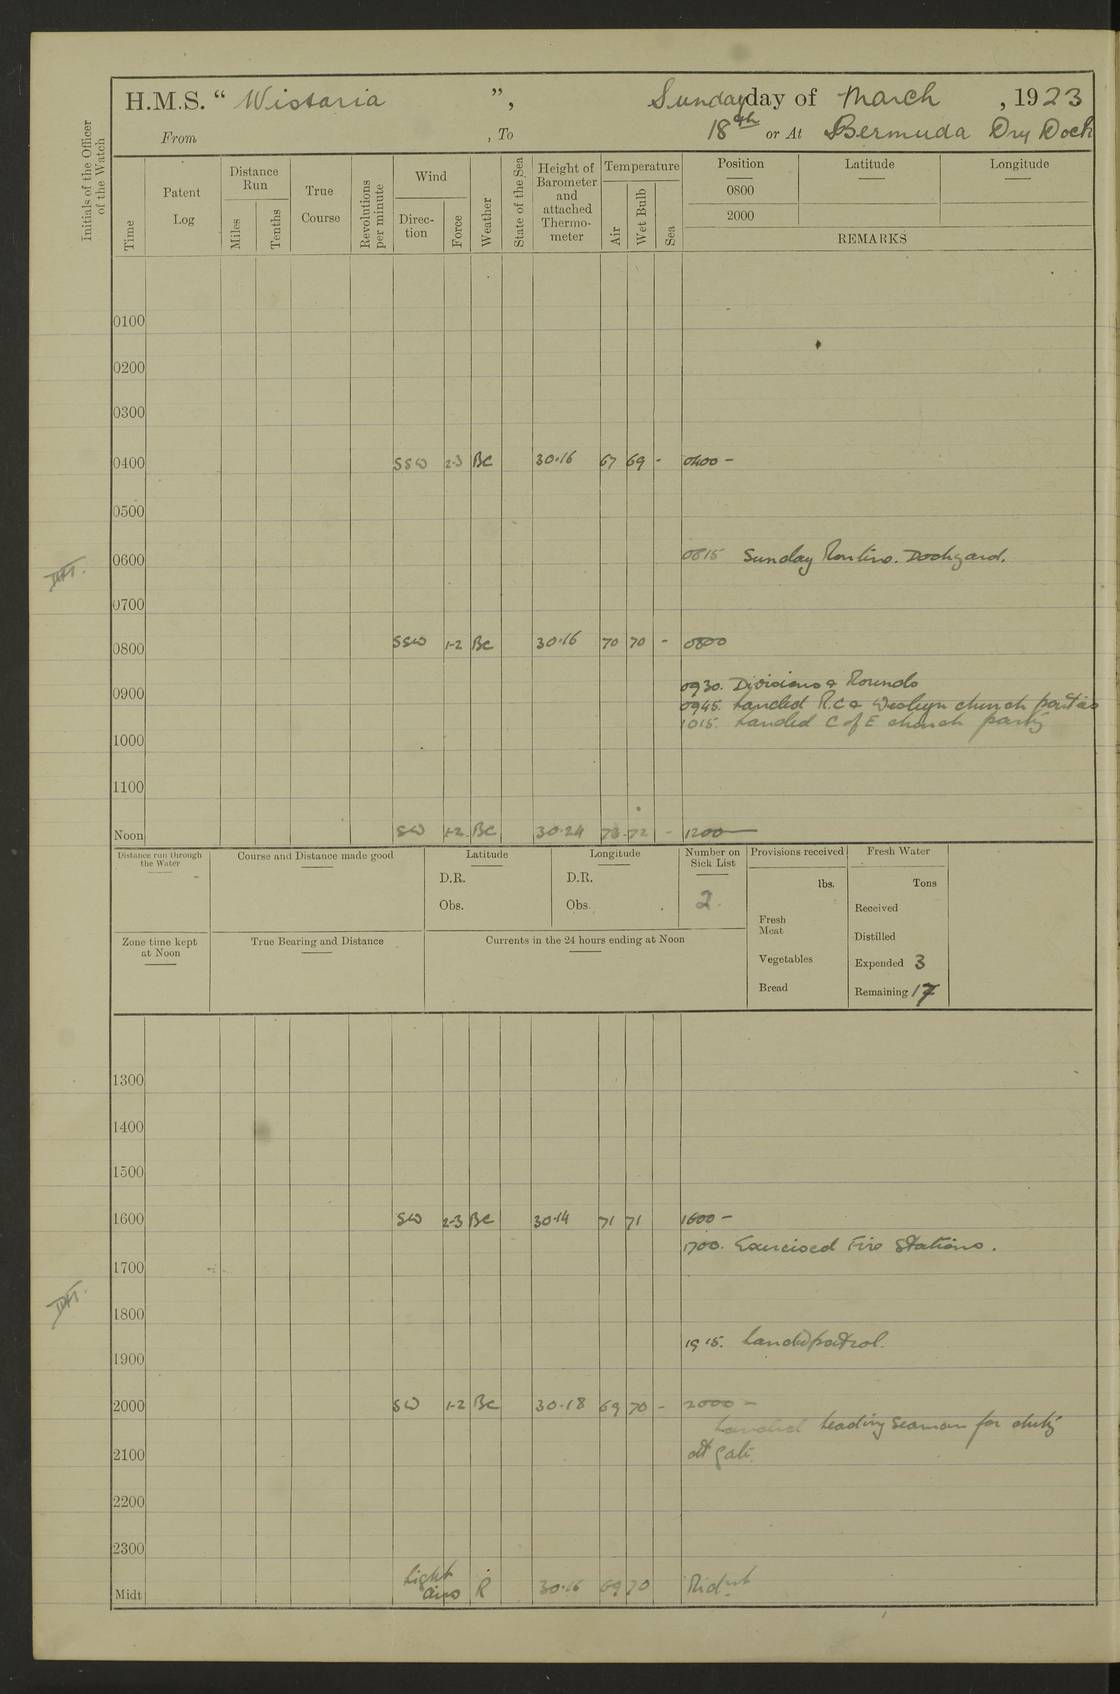 H.M.S. “ Wistaria ”, Sunday day of March , 1923
From , To 18th or At Bermuda Dry Dock
Initials of the Officer of the Watch
Time
Patent Log
Distance Run
Miles
Tenths
True Course
Revolutions per minute
Wind
Direc-tion
Force
Weather
State of the Sea
Height of Barometer and attached Thermo-meter
Temperature
Air
Wet Bulb
Sea
Position
0800
2000
Latitude
Longitude
REMARKS
0100
0200
0300
0400 SSW 2-3 BC 30.16 67 69 - 0400 -
0500
0600 0815 Sunday Routine. Dockyard.
0700
0800 SSW 1-2 BC 30.16 70 70 - 0800
0930. Divisions & Rounds
0900
0945. Landed R.C & Wesleyn church parties
1015. Landed C of E church party
1000
1100
Noon SW 1-2 BC 30.24 73 72 - 1200
Distance run through the Water
Course and Distance made good
Latitude
D.R.
Obs.
Longitude
D.R.
Obs.
Number on Sick List
2
Provisions received
lbs.
Fresh Meat
Vegetables
Bread
Fresh Water
Tons
Received
Distilled
Expended 3
Remaining 17
Zone time kept at Noon
True Bearing and Distance
Currents in the 24 hours ending at Noon
1300
1400
1500
1600 SW 2-3 BC 30.14 71 71 1600 -
1700. Exercised Fire Stations.
1700
1800
1915. Landed patrol.
1900
2000 SW 1-2 BC 30.18 69 70 - 2000 -
Landed Leading Seaman for duty
2100 at Gate.
2200
2300
Midt Light airs R 30.16 69 70